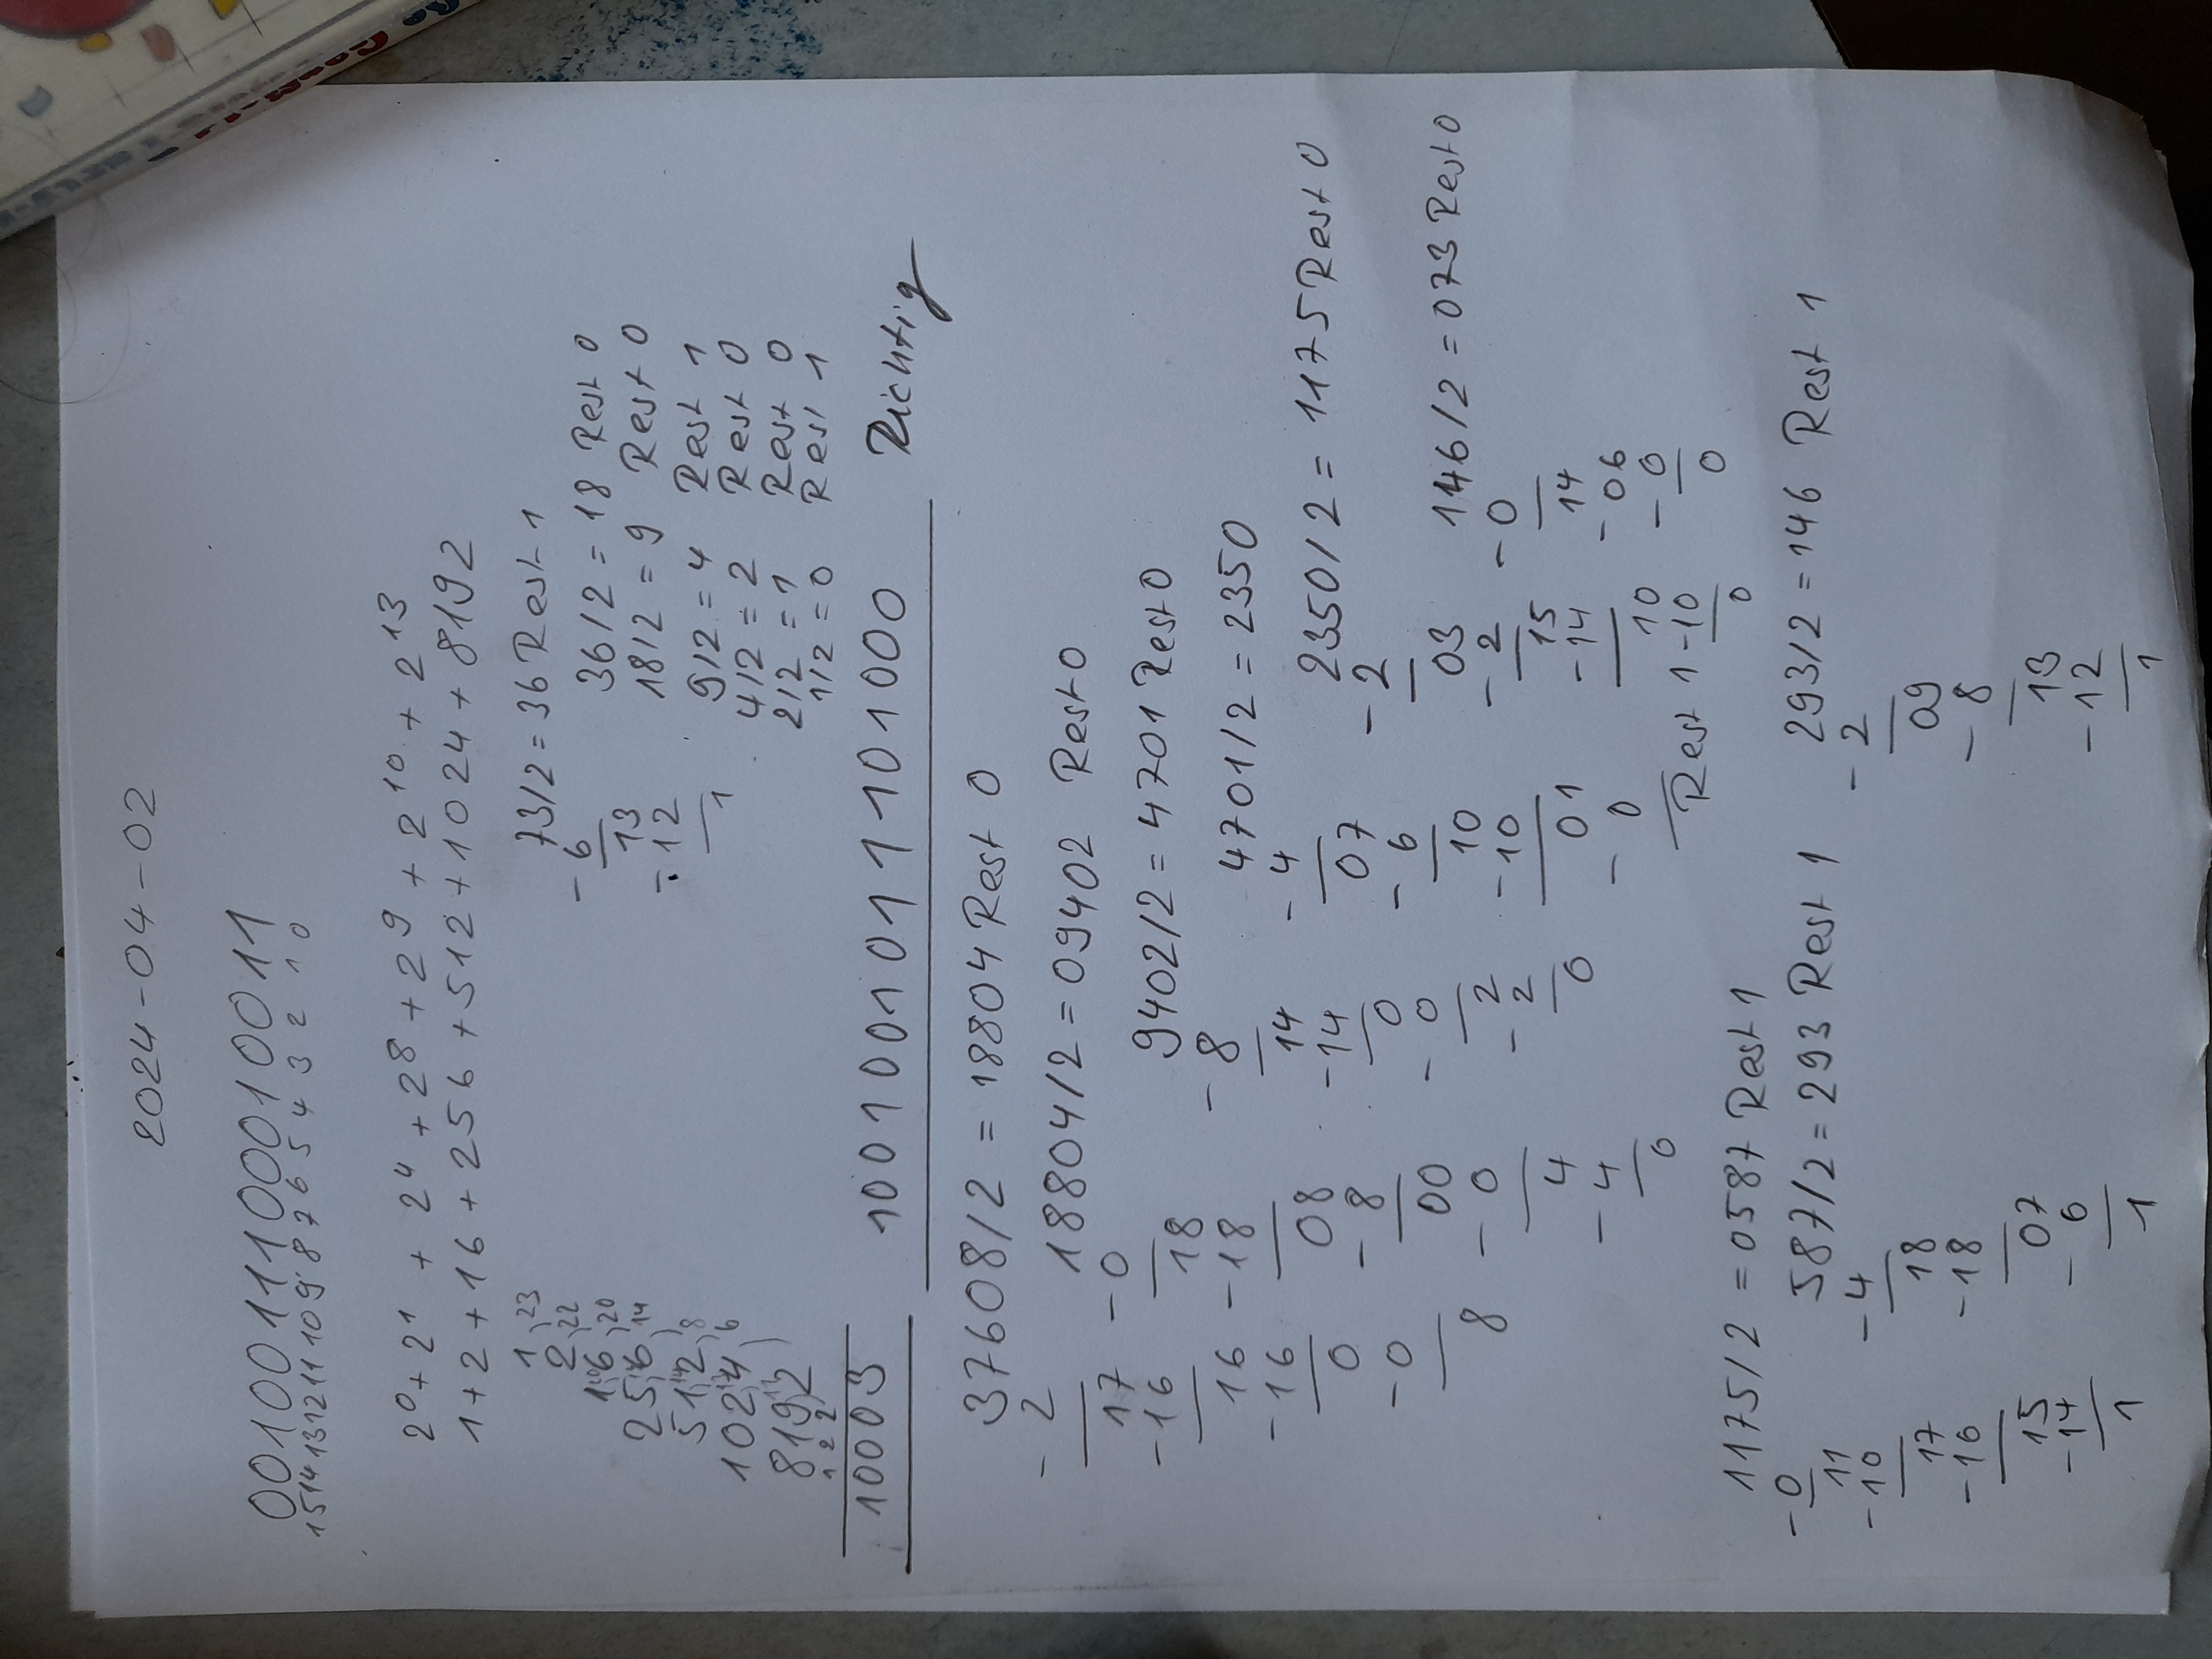 2024-04-02
0010011100010011
15 14 13 12 11 10 9 8 7 6 5 4 3 2 1 0
2^0 + 2^1 + 2^4 + 2^8 + 2^9 + 2^10 + 2^13
1 + 2 + 16 + 256 + 512 + 1024 + 8192
1
2
16
256
512
1024
8192
1 2 2
10003
73/2 = 36 Rest 1
- 6
13
- 12
1
36/2 = 18 Rest 0
18/2 = 9 Rest 0
9/2 = 4 Rest 1
4/2 = 2 Rest 0
2/2 = 1 Rest 0
1/2 = 0 Rest 1
1001001011101000 Richtig
37608/2 = 18804 Rest 0
- 2
17
- 16
16
- 16
0
- 0
8
18804/2 = 09402 Rest 0
- 0
18
- 18
08
- 8
00
- 0
4
- 4
0
9402/2 = 4701 Rest 0
- 8
14
- 14
0
- 0
2
- 2
0
4701/2 = 2350
- 4
07
- 6
10
- 10
01
- 0
Rest 1
2350/2 = 1175 Rest 0
- 2
03
- 2
15
- 14
10
- 10
0
146/2 = 073 Rest 0
- 0
14
- 06
- 0
0
1175/2 = 0587 Rest 1
- 0
11
- 10
17
- 16
15
- 14
1
587/2 = 293 Rest 1
- 4
18
- 18
07
- 6
1
293/2 = 146 Rest 1
- 2
09
- 8
13
- 12
1